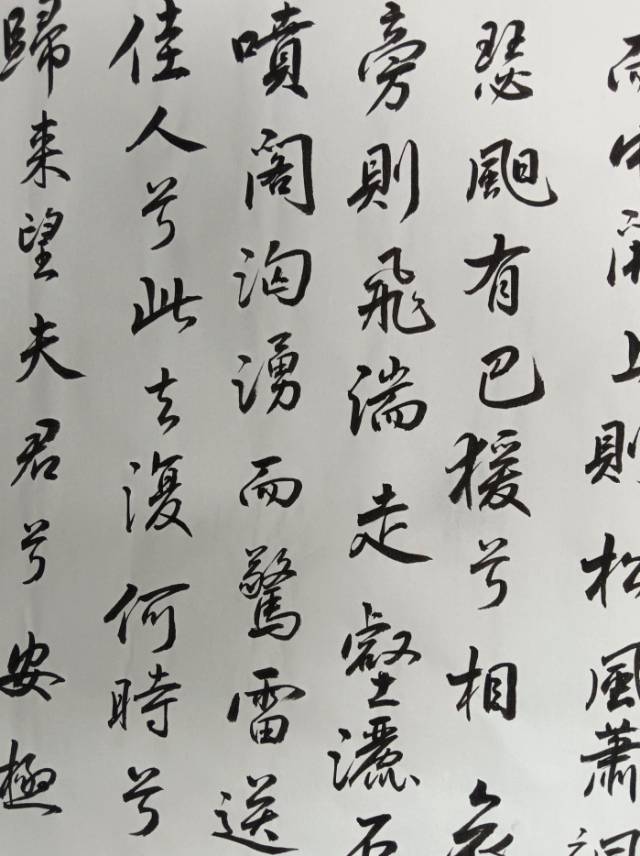 而中開上則松風蕭颯
瑟䫻有巴猨兮相哀
旁則飛湍走壑灑石
噴閣洶湧而驚雷送
佳人兮此去復何時兮
歸来望夫君兮安極